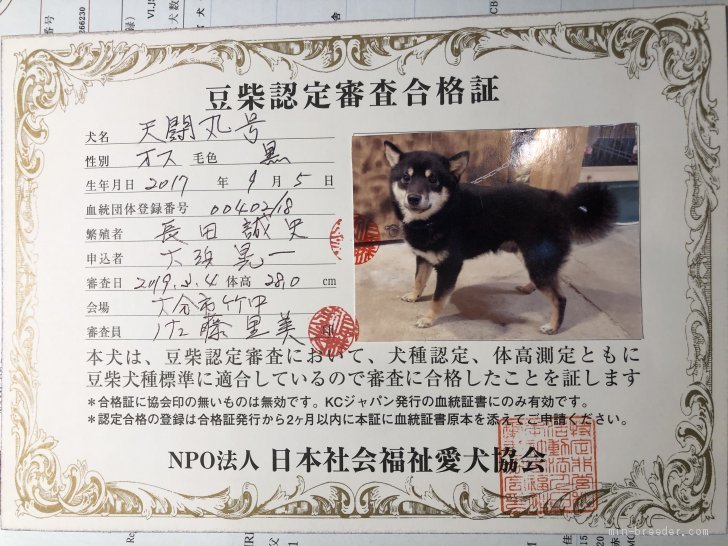 豆柴認定審査合格証
犬名 天闘丸号
性別 オス 毛色 黒
生年月日 2017 年 9 月 5 日
血統団体登録番号 00402/18
繁殖者 長田 誠
申込者 大 晃一
審査日 2019.2.4 体高 28.0 cm
会場 大分市竹中
審査員 藤 里美
本犬は、豆柴認定審査において、犬種認定、体高測定ともに
豆柴犬種標準に適合しているので審査に合格したことを証します
*合格証に協会印の無いものは無効です。KCジャパン発行の血統証書にのみ有効です。
*認定合格の登録は合格証発行から2ヶ月以内に本証に血統証書原本を添えてご申請ください。
NPO法人 日本社会福祉愛犬協会
min-breeder.com